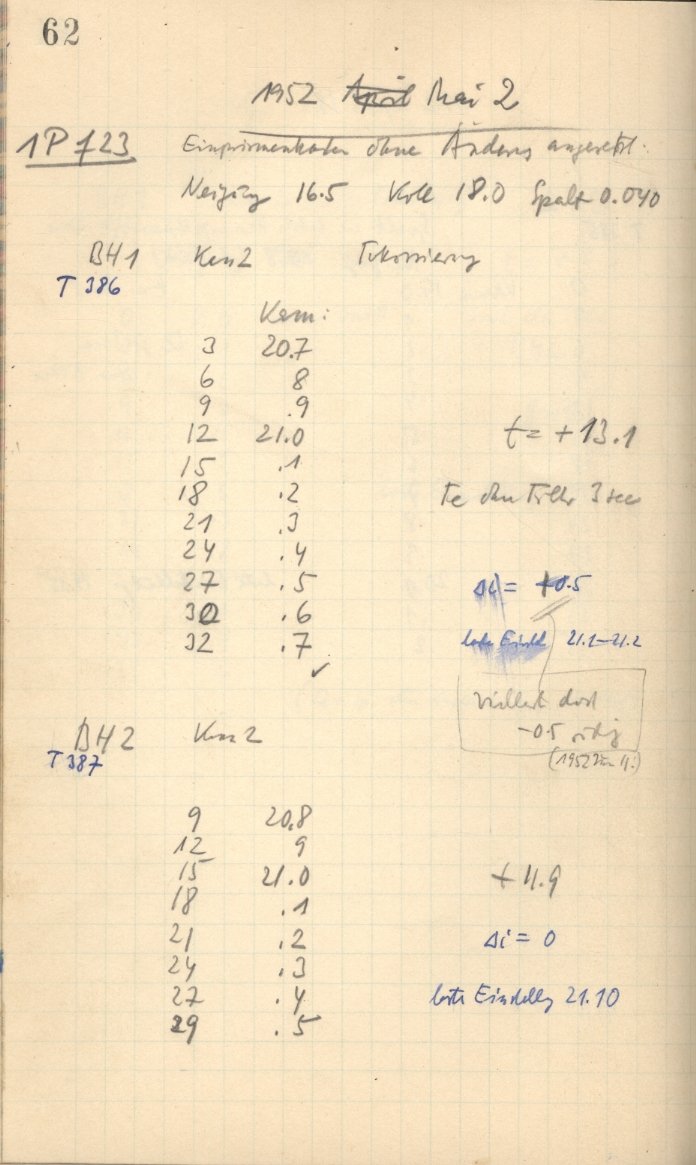 62
1952 April Mai 2
1P723 Einprismenkasten ohne Änderg angesetzt.
Neigung 16.5 Koll 18.0 Spalt 0.040
BH1 Kam 2 Fokussierung
T 386
Kam:
3 20.7
6 8
9 .9
12 21.0 t = +13.1
15 .1
18 .2 3 sec
21 .3
24 .4
27 .5 Δi = +0.5
30 .6
32 .7 21.1–21.2
✓
vielleicht doch
-0.5 nötig
BH2 Kam 2
T 387
(1952 4.)
9 20.8
12 9
15 21.0 + 4.9
18 .1
21 .2 Δi = 0
24 .3
27 .4 beste Einstellg 21.10
29 .5